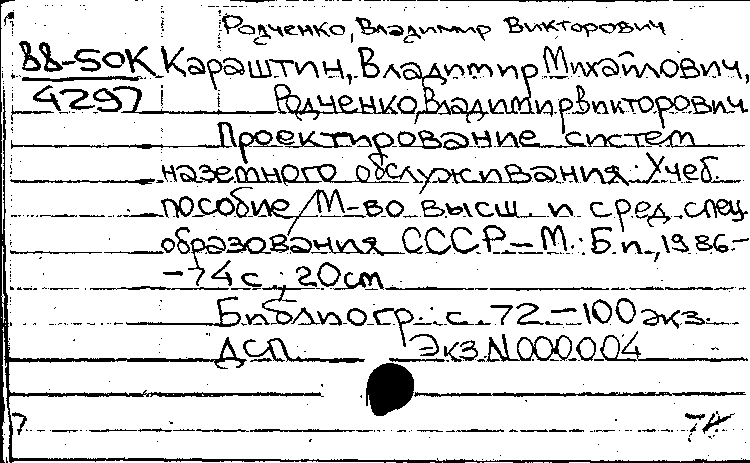 Родченко, Владимир Викторович
88-50К Караштин, Владимир Михайлович,
4297 Родченко, Владимир Викторович.
Проектирование систем
наземного обслуживания: Учеб.
пособие / М-во высш. и сред. спец.
образования СССР. – М.: Б.и., 1986. –
– 74 с.; 20 см
Библиогр.: с. 72. – 100 экз.
ДСП Экз. N 000004